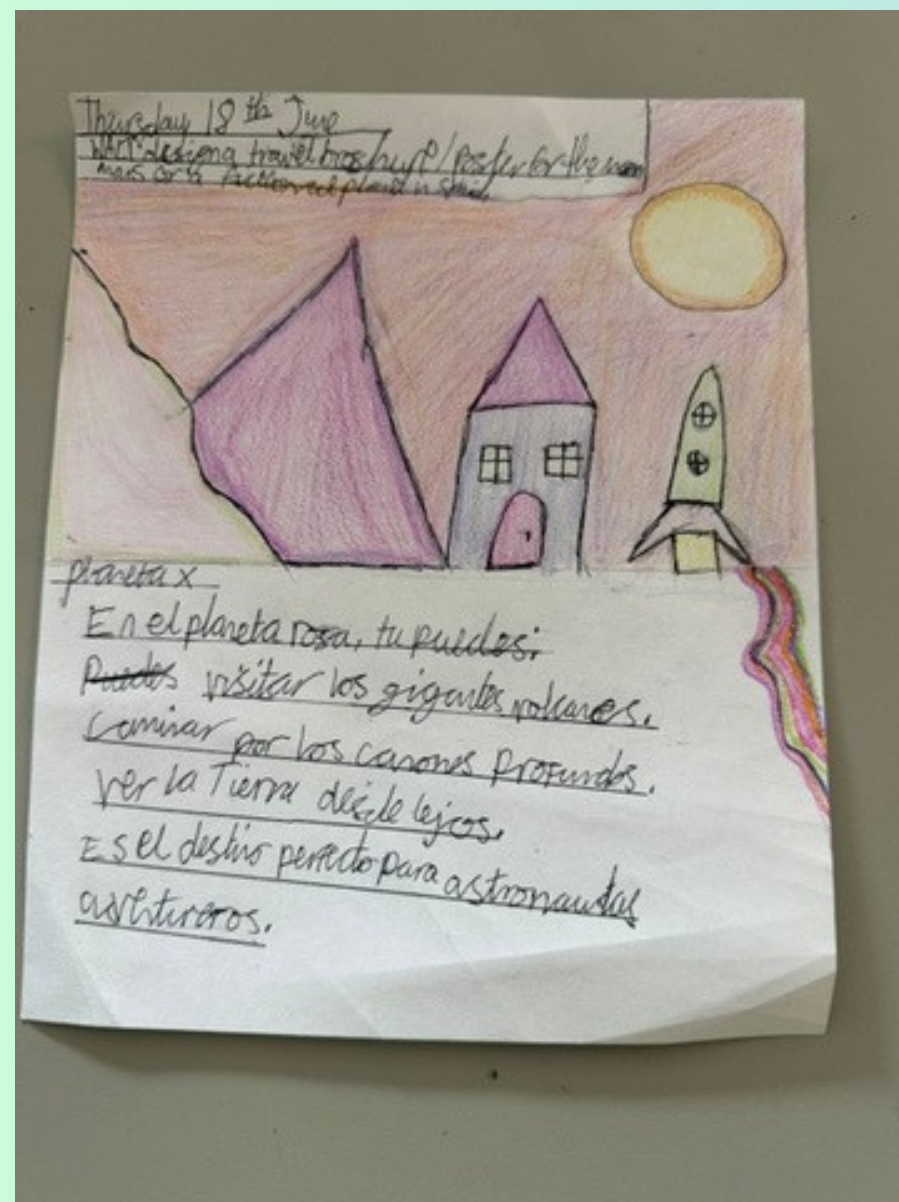 Thursday 18th June
WALT: design a travel broshure/poster for the moon
mars or a fictional planet in
planeta x
En el planeta rosa, tu puedes:
Puedes visitar los gigantes volcanes.
Caminar por los canones profundos.
ver la Tierra desde lejos.
Es el destino perfecto para astronautas
aventureros.